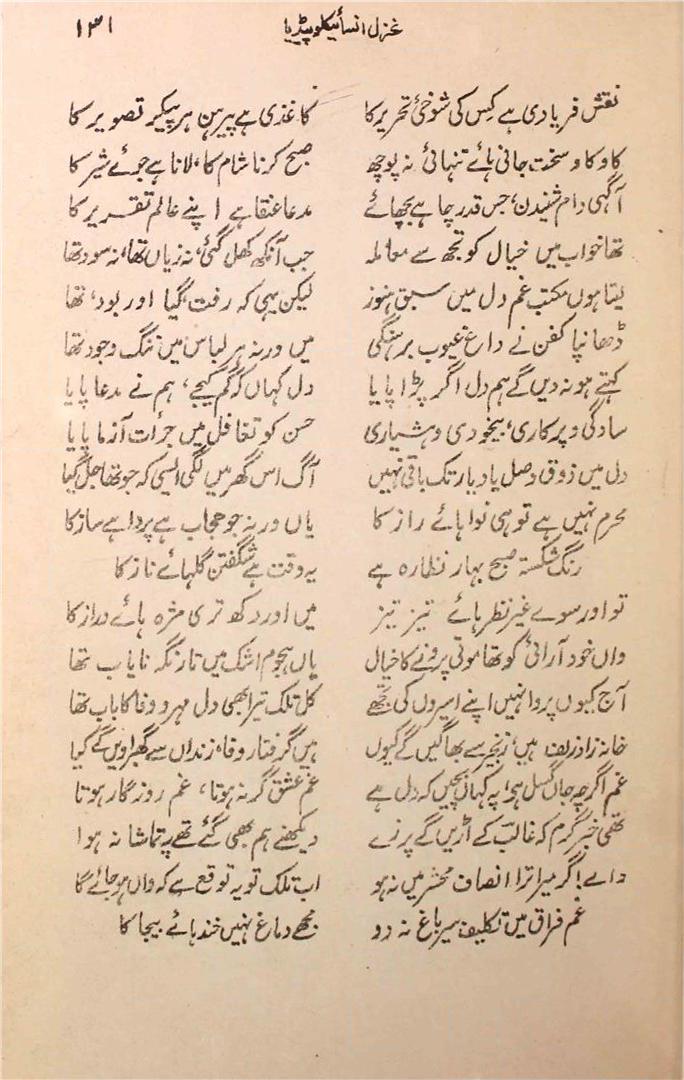 غزل انسائیکلوپیڈیا ۱۳۱
نقش فریادی ہے کس کی شوخیٔ تحریر کا کاغذی ہے پیرہن ہر پیکر تصویر کا
کاوکاو سخت جانی ہائے تنہائی نہ پوچھ صبح کرنا شام کا، لانا ہے جوئے شیر کا
آگہی دام شنیدن، جس قدر چاہے بچھائے مدعا عنقا ہے اپنے عالم تقریر کا
تھا خواب میں خیال کو تجھ سے معاملہ جب آنکھ کھل گئی، نہ زیاں تھا، نہ سود تھا
لیتا ہوں مکتب غم دل میں سبق ہنوز لیکن یہی کہ رفت، گیا اور بود، تھا
ڈھانپا کفن نے داغ عیوب برہنگی میں ورنہ ہر لباس میں ننگ وجود تھا
کہتے ہو نہ دیں گے ہم دل اگر پڑا پایا دل کہاں کہ گم کیجے، ہم نے مدعا پایا
سادگی و پرکاری، بیخودی و ہشیاری حسن کو تغافل میں جرأت آزما پایا
دل میں ذوق وصل یاد یار تک باقی نہیں آگ اس گھر میں لگی ایسی کہ جو تھا جل گیا
محرم نہیں ہے تو ہی نوا ہائے راز کا یاں ورنہ جو حجاب ہے پردا ہے ساز کا
رنگ شکستہ صبح بہار نظارہ ہے یہ وقت ہے شگفتن گلہائے ناز کا
تو اور سوے غیر نظر ہائے تیز تیز میں اور دکھ تری مژہ ہائے دراز کا
واں خود آرائی کو تھا موتی پرونے کا خیال یاں ہجوم اشک میں تار نگہ نایاب تھا
آج کیوں پروا نہیں اپنے اسیروں کی تجھے کل تلک تیرا بھی دل مہر و وفا کا باب تھا
خانہ زاد زلف ہیں، زنجیر سے بھاگیں گے کیوں ہیں گرفتار وفا، زنداں سے گھبراویں گے کیا
غم اگرچہ جاں گسل ہے، پہ کہاں بچیں کہ دل ہے غم عشق گر نہ ہوتا، غم روزگار ہوتا
تھی خبر گرم کہ غالبؔ کے اڑیں گے پرزے دیکھنے ہم بھی گئے تھے پہ تماشا نہ ہوا
وائے! گر میرا ترا انصاف محشر میں نہ ہو اب تلک تو یہ توقع ہے کہ واں ہو جائے گا
غم فراق میں تکلیف سیر باغ نہ دو مجھے دماغ نہیں خندہائے بیجا کا